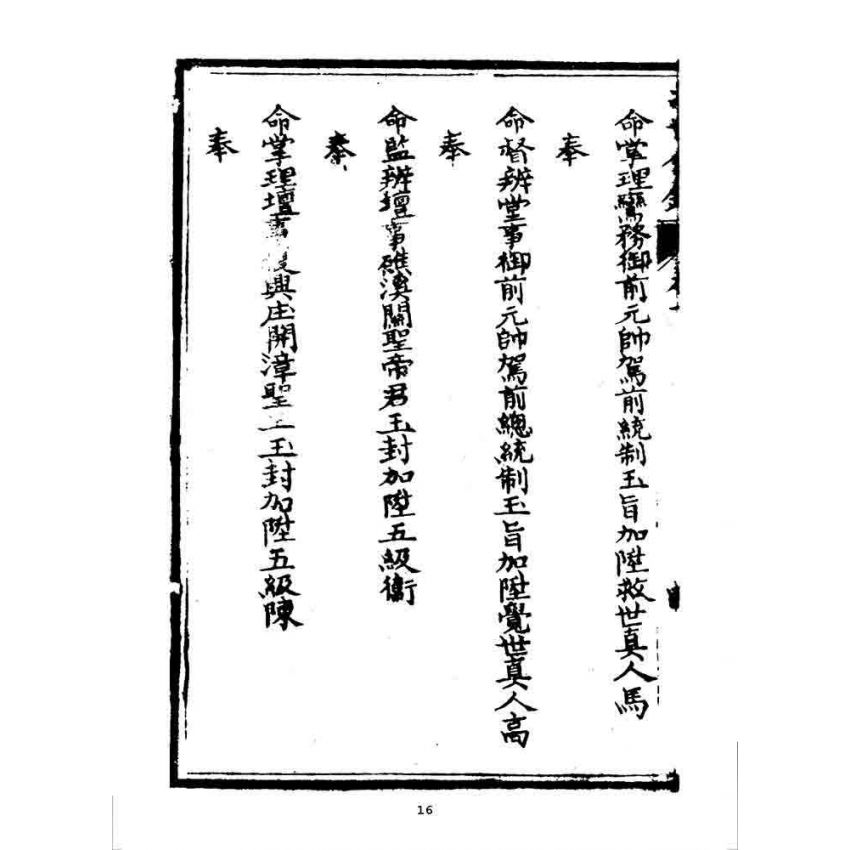 命掌理鸞務御前元帥駕前統制玉旨加陞救世真人馬
奉
命督辨堂事御前元帥駕前總統制玉旨加陞覺世真人高
奉
命監辨壇事礁澳關聖帝君玉封加陞五級衛
奉
命掌理壇事興庄開漳聖玉封加陞五級陳
奉
16